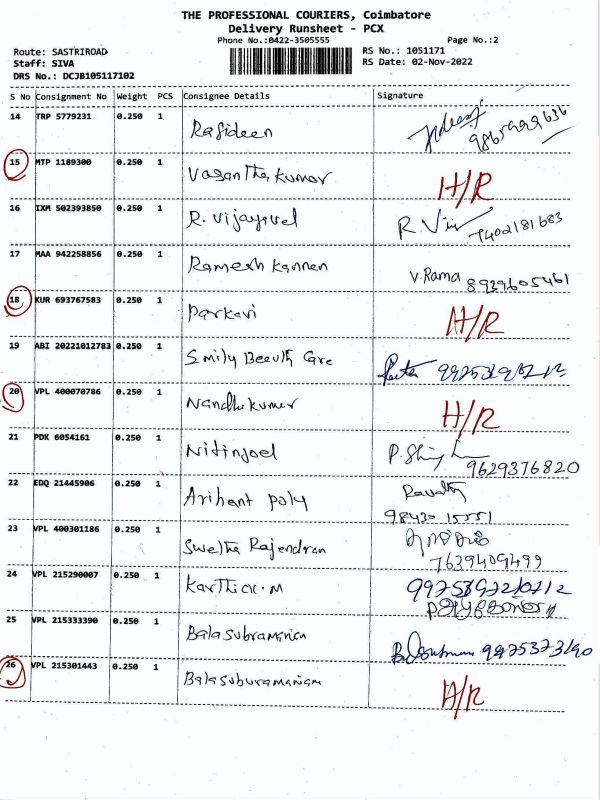 THE PROFESSIONAL COURIERS, Coimbatore
Delivery Runsheet - PCX
Phone No.:0422-3505555 Page No.:2
Route: SASTRIROAD RS No.: 1051171
Staff: SIVA RS Date: 02-Nov-2022
DRS No.: DCJB105117102
S No Consignment No Weight PCS Consignee Details Signature
14 TRP 5779231 0.250 1 Rafideen 9865999636
15 MTP 1189300 0.250 1 Vasantha kumar H/R
16 IXM 502393850 0.250 1 R. Vijayavel R. Vij 9402181683
17 MAA 942258856 0.250 1 Ramesh Kannan V.Rama 8939605461
18 KUR 693767583 0.250 1 Parkavi H/R
19 ABI 20221012783 0.250 1 Smily Beauth Care
20 VPL 400070786 0.250 1 Nandhakumar H/R
21 PDK 6054161 0.250 1 Nitinjoel 9629376820
22 EDQ 21445906 0.250 1 Arihant poly
98430 15551
23 VPL 400301186 0.250 1 Swetha Rajendran
7639409499
24 VPL 215290007 0.250 1 Karthick.M
25 VPL 215333390 0.250 1 Balasubramaniam
26 VPL 215301443 0.250 1 Balasuburamaniam H/R